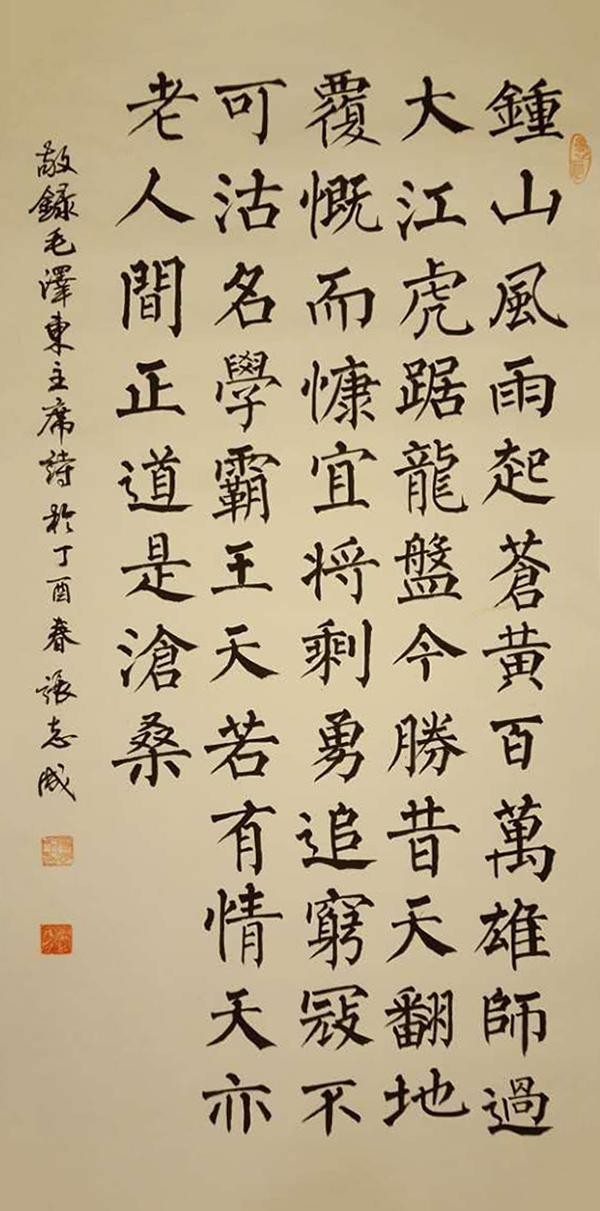 鍾山風雨起蒼黃百萬雄師過
大江虎踞龍盤今勝昔天翻地
覆慨而慷宜将剩勇追窮冦不
可沽名學霸王天若有情天亦
老人間正道是滄桑
敬錄毛澤東主席詩於丁酉春張志成